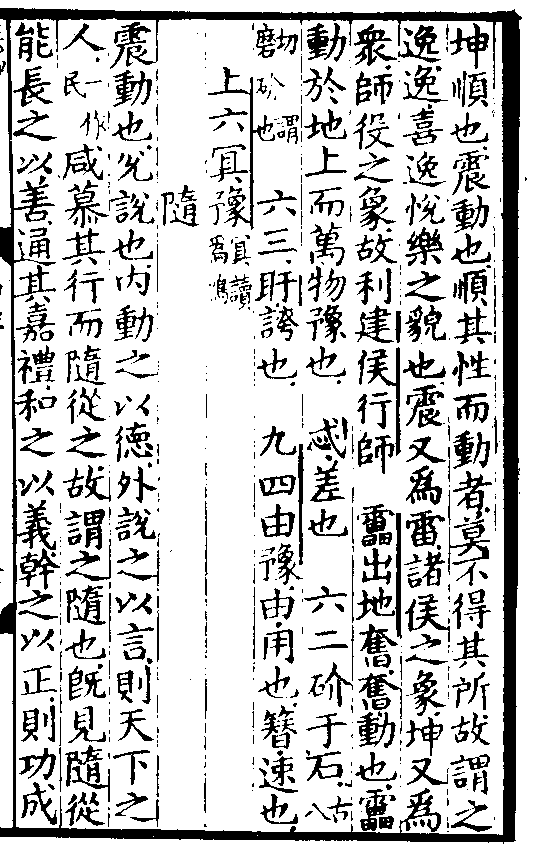 坤順也震動也順其性而動者莫不得其所故謂之
逸逸喜逸恱樂之貌也震又爲雷諸侯之象坤又爲
衆師役之象故利建侯行師　靁出地奮奮動也靁
動於地上而萬物豫也　忒差也　六二砎于石古八
磨砎也切謂　六三盱誇也　九四由豫由用也簪速也
上六冥豫冥讀爲鳴
隨
震動也兊説也内動之以徳外説之以言則天下之
人一作民咸慕其行而隨從之故謂之隨也旣見隨從
能長之以善通其嘉禮和之以義幹之以正則功成